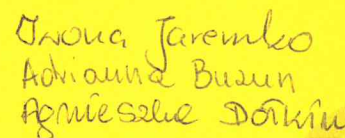 Iwona Jaremko
Adrianna Buzun
Agnieszka